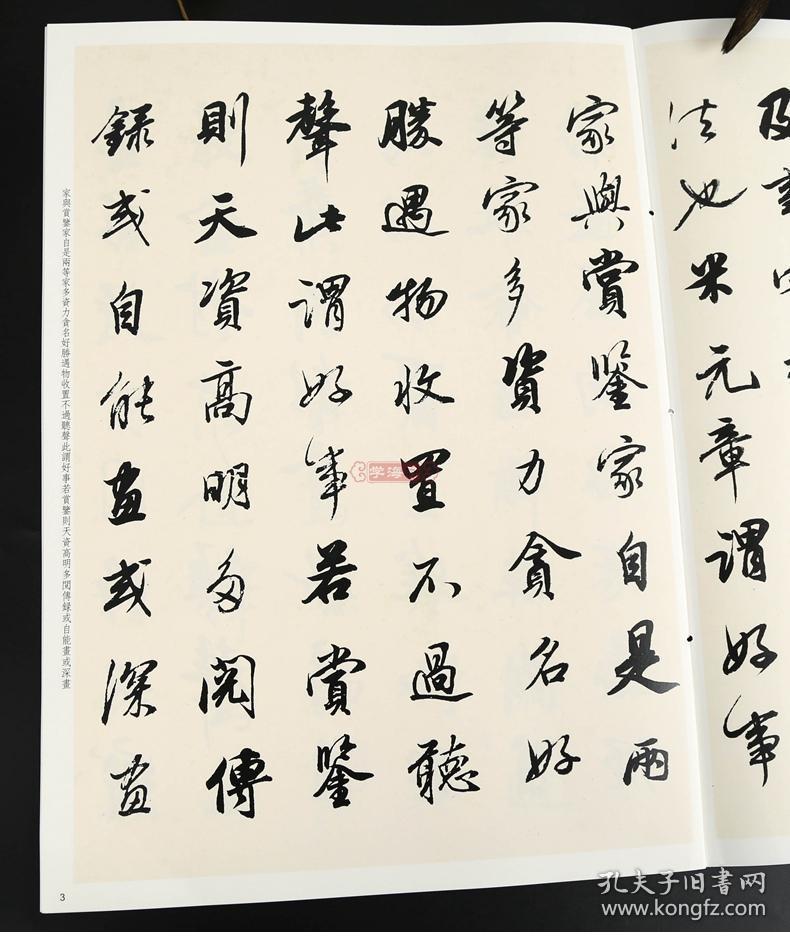 法也米元章謂好事
家與賞鑒家自是兩
等家多資力貪名好
勝遇物收置不過聽
聲此謂好事若賞鑒
則天資高明多閱傳
錄或自能畫或深畫
家與賞鑒家自是兩等家多資力貪名好勝遇物收置不過聽聲此謂好事若賞鑒則天資高明多閱傳録或自能畫或深畫
3
孔夫子旧书网
www.kongfz.com